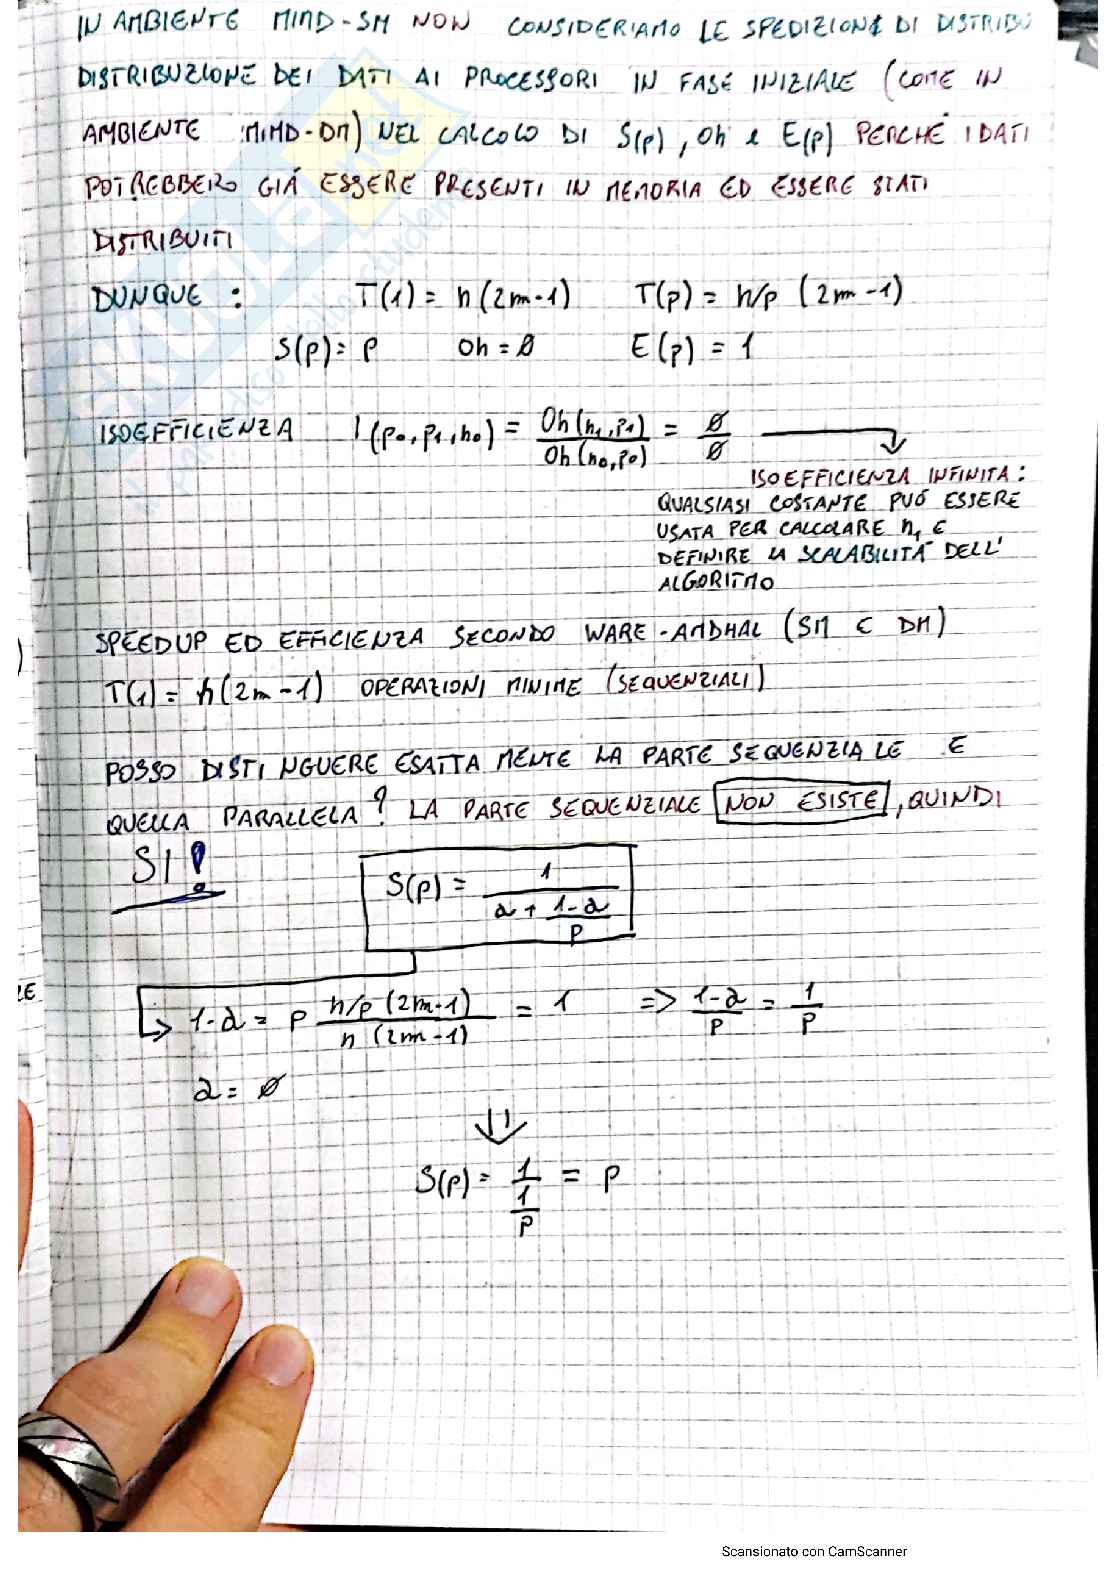 IN AMBIENTE MIMD-SM NON CONSIDERIAMO LE SPEDIZIONI DI DISTRIBU
DISTRIBUZIONE DEI DATI AI PROCESSORI IN FASE INIZIALE (COME IN
AMBIENTE MIMD-DM) NEL CALCOLO DI S(p), Oh e E(p) PERCHÉ I DATI
POTREBBERO GIÁ ESSERE PRESENTI IN MEMORIA ED ESSERE STATI
DISTRIBUITI
DUNQUE : T(1) = n(2m-1) T(p) = n/p (2m-1)
S(p) = p Oh = 0 E(p) = 1
ISOEFFICIENZA I(p0, p1, n0) = Oh(n1, p1) / Oh(n0, p0) = 0/0 →
ISOEFFICIENZA INFINITA:
QUALSIASI COSTANTE PUÓ ESSERE
USATA PER CALCOLARE n1 E
DEFINIRE LA SCALABILITÁ DELL'
ALGORITMO
SPEEDUP ED EFFICIENZA SECONDO WARE-AMDHAL (SM E DM)
T(1) = n(2m-1) OPERAZIONI MINIME (SEQUENZIALI)
POSSO DISTINGUERE ESATTAMENTE LA PARTE SEQUENZIALE E
QUELLA PARALLELA? LA PARTE SEQUENZIALE NON ESISTE, QUINDI
SI!
S(p) = 1 / (a + (1-a)/p)
ZE
1-a = p (n/p (2m-1)) / (n (2m-1)) = 1 => (1-a)/p = 1/p
a = 0
⇓
S(p) = 1 / (1/p) = p
Scansionato con CamScanner